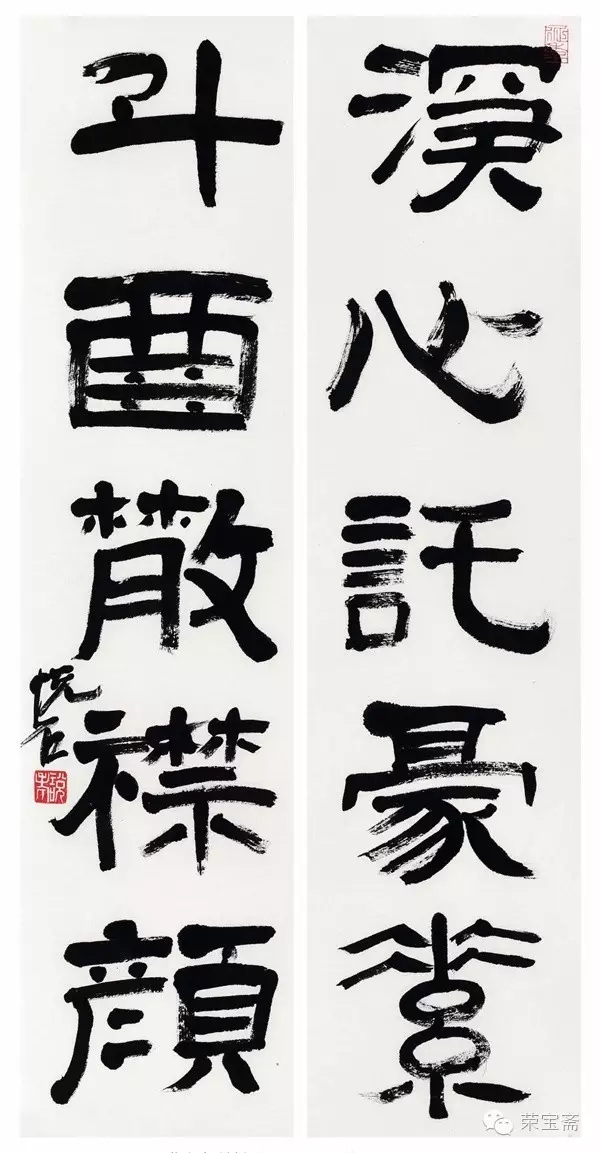 深心託豪素
斗酉散襟顔
悦石
荣宝斋